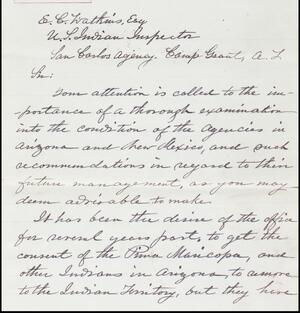 E. C. Watkins, Esq
U. S. Indian Inspector
San Carlos Agency. Camp Grant, A. T.
Sir:
Your attention is called to the im-
portance of a thorough examination
into the condition of the Agencies in
Arizona and New Mexico, and such
recommendations in regard to their
future management, as you may
deem advisable to make.
It has been the desire of the office
for several years past, to get the
consent of the Pima Maricopa, and
other Indians in Arizona, to remove
to the Indian Territory, but they have